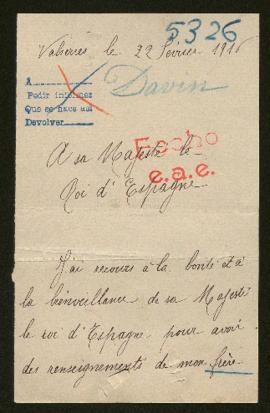 5326
Valierres le 22 Février 1916
Davin
A
Pedir informez
Que se hace así
Devolver
Fecho
e.a.e.
A sa Majesté le
Roi d'Espagne
J'ai recours à la bonté et à
la bienveillance de sa Majesté
le roi d'Espagne pour avoir
des renseignements de mon frère